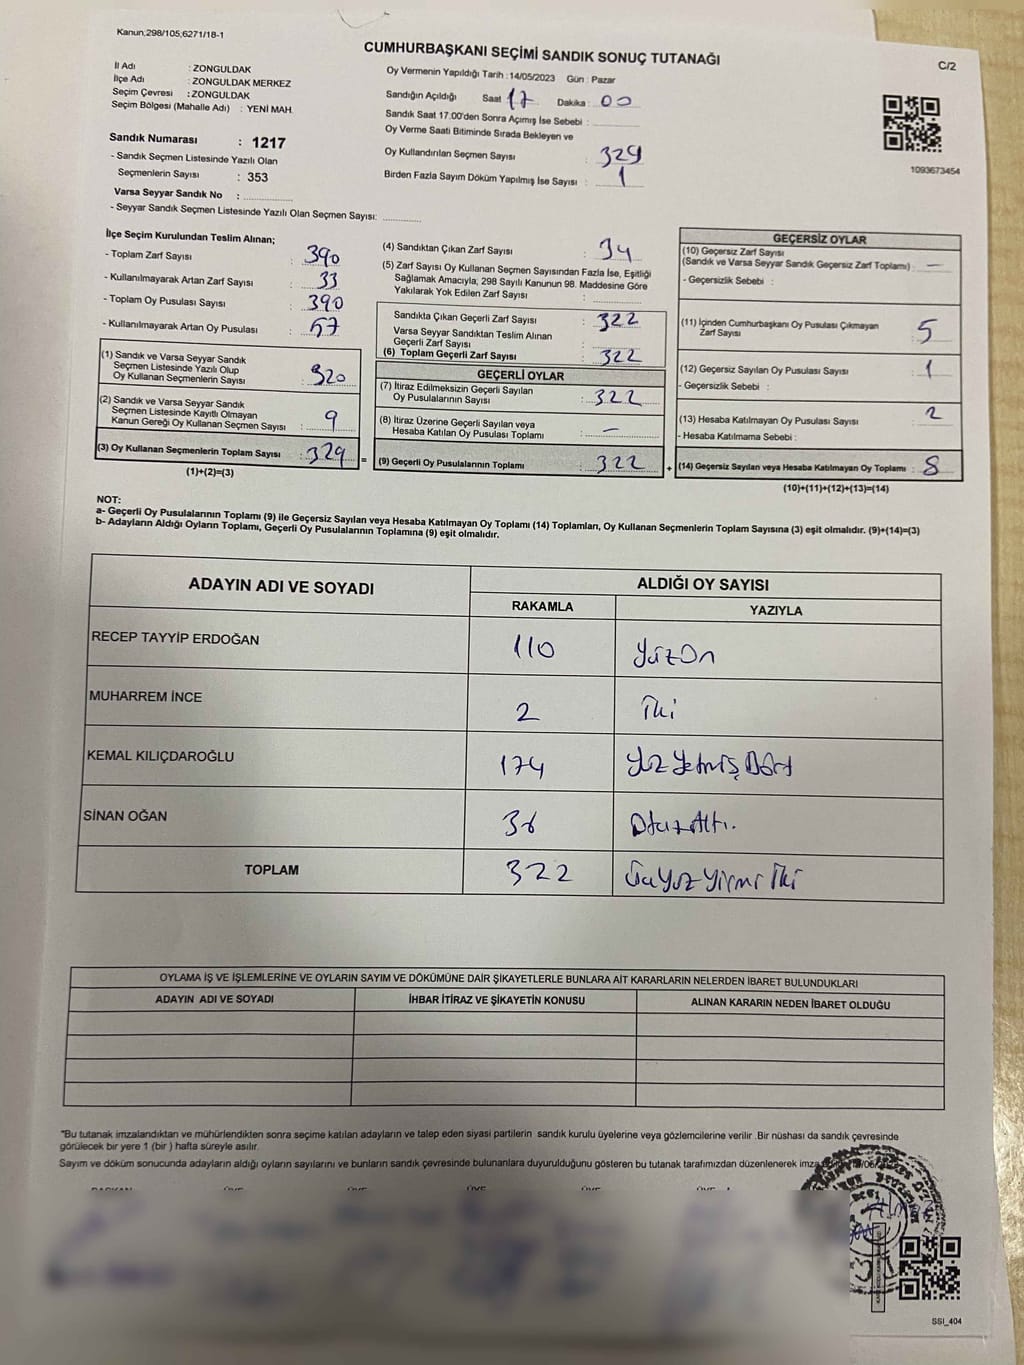 Kanun,298/105,6271/18-1
CUMHURBAŞKANI SEÇİMİ SANDIK SONUÇ TUTANAĞI
C/2
İl Adı : ZONGULDAK
İlçe Adı : ZONGULDAK MERKEZ
Seçim Çevresi : ZONGULDAK
Seçim Bölgesi (Mahalle Adı) : YENİ MAH.
Oy Vermenin Yapıldığı Tarih : 14/05/2023 Gün : Pazar
Sandığın Açıldığı Saat 17 Dakika : 00
Sandık Saat 17.00'den Sonra Açımış İse Sebebi :
Oy Verme Saati Bitiminde Sırada Bekleyen ve
Oy Kullandırılan Seçmen Sayısı : 329
Birden Fazla Sayım Döküm Yapılmış İse Sayısı : 1
1093673454
Sandık Numarası : 1217
- Sandık Seçmen Listesinde Yazılı Olan
Seçmenlerin Sayısı : 353
Varsa Seyyar Sandık No :
- Seyyar Sandık Seçmen Listesinde Yazılı Olan Seçmen Sayısı:
İlçe Seçim Kurulundan Teslim Alınan;
- Toplam Zarf Sayısı : 390
- Kullanılmayarak Artan Zarf Sayısı : 33
- Toplam Oy Pusulası Sayısı : 390
- Kullanılmayarak Artan Oy Pusulası : 57
(1) Sandık ve Varsa Seyyar Sandık
Seçmen Listesinde Yazılı Olup
Oy Kullanan Seçmenlerin Sayısı : 320
(2) Sandık ve Varsa Seyyar Sandık
Seçmen Listesinde Kayıtlı Olmayan
Kanun Gereği Oy Kullanan Seçmen Sayısı : 9
(3) Oy Kullanan Seçmenlerin Toplam Sayısı : 329 =
(1)+(2)=(3)
(4) Sandıktan Çıkan Zarf Sayısı : 34
(5) Zarf Sayısı Oy Kullanan Seçmen Sayısından Fazla İse, Eşitliği
Sağlamak Amacıyla; 298 Sayılı Kanunun 98. Maddesine Göre
Yakılarak Yok Edilen Zarf Sayısı :
Sandıkta Çıkan Geçerli Zarf Sayısı : 322
Varsa Seyyar Sandıktan Teslim Alınan
Geçerli Zarf Sayısı :
(6) Toplam Geçerli Zarf Sayısı : 322
GEÇERLİ OYLAR
(7) İtiraz Edilmeksizin Geçerli Sayılan
Oy Pusulalarının Sayısı : 322
(8) İtiraz Üzerine Geçerli Sayılan veya
Hesaba Katılan Oy Pusulası Toplamı : —
(9) Geçerli Oy Pusulalarının Toplamı : 322 +
GEÇERSİZ OYLAR
(10) Geçersiz Zarf Sayısı
(Sandık ve Varsa Seyyar Sandık Geçersiz Zarf Toplamı) : —
- Geçersizlik Sebebi :
(11) İçinden Cumhurbaşkanı Oy Pusulası Çıkmayan
Zarf Sayısı : 5
(12) Geçersiz Sayılan Oy Pusulası Sayısı : 1
- Geçersizlik Sebebi :
(13) Hesaba Katılmayan Oy Pusulası Sayısı : 2
- Hesaba Katılmama Sebebi :
(14) Geçersiz Sayılan veya Hesaba Katılmayan Oy Toplamı : 8
(10)+(11)+(12)+(13)=(14)
NOT:
a- Geçerli Oy Pusulalarının Toplamı (9) ile Geçersiz Sayılan veya Hesaba Katılmayan Oy Toplamı (14) Toplamları, Oy Kullanan Seçmenlerin Toplam Sayısına (3) eşit olmalıdır. (9)+(14)=(3)
b- Adayların Aldığı Oyların Toplamı, Geçerli Oy Pusulalarının Toplamına (9) eşit olmalıdır.
ADAYIN ADI VE SOYADI
ALDIĞI OY SAYISI
RAKAMLA YAZIYLA
RECEP TAYYİP ERDOĞAN 110 YüzOn
MUHARREM İNCE 2 İki
KEMAL KILIÇDAROĞLU 174 Yüz Yetmiş Dört
SİNAN OĞAN 36 OtuzAltı.
TOPLAM 322 Üç Yüz Yirmi İki
OYLAMA İŞ VE İŞLEMLERİNE VE OYLARIN SAYIM VE DÖKÜMÜNE DAİR ŞİKAYETLERLE BUNLARA AİT KARARLARIN NELERDEN İBARET BULUNDUKLARI
ADAYIN ADI VE SOYADI İHBAR İTİRAZ VE ŞİKAYETİN KONUSU ALINAN KARARIN NEDEN İBARET OLDUĞU
*Bu tutanak imzalandıktan ve mühürlendikten sonra seçime katılan adayların ve talep eden siyasi partilerin sandık kurulu üyelerine veya gözlemcilerine verilir .Bir nüshası da sandık çevresinde
görülecek bir yere 1 (bir ) hafta süreyle asılır.
Sayım ve döküm sonucunda adayların aldığı oyların sayılarını ve bunların sandık çevresinde bulunanlara duyurulduğunu gösteren bu tutanak tarafımızdan düzenlenerek
SSI_404